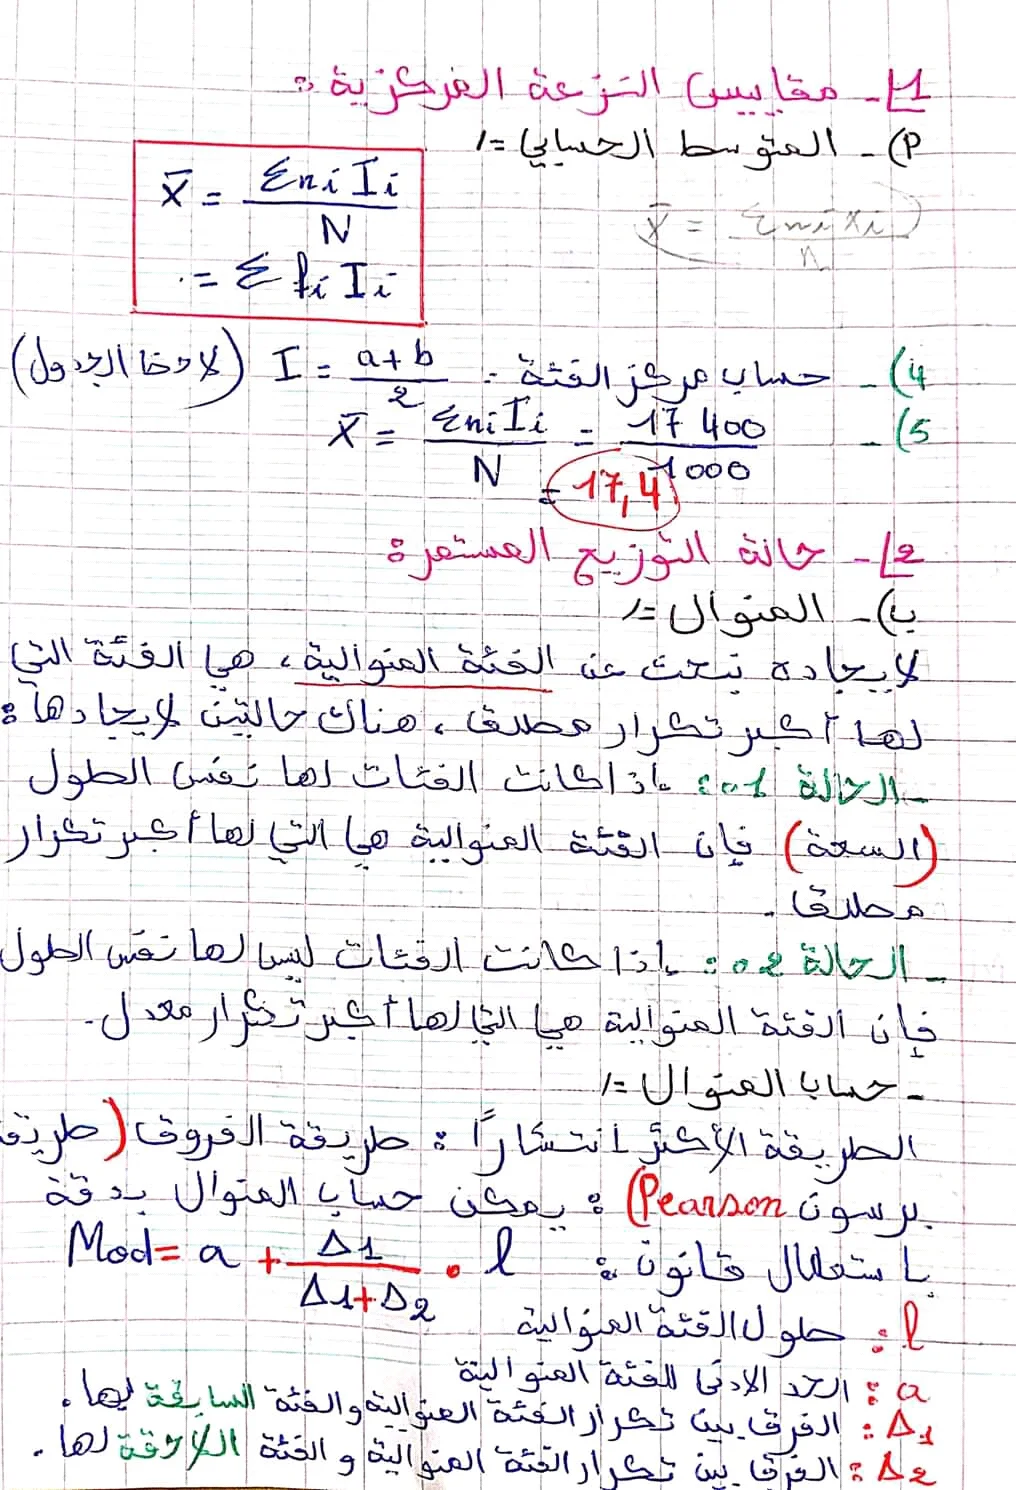 1- مقاييس النزعة المركزية :
P)- المتوسط الحسابي =/
x̄ = Σ ni Ii / N
= Σ fi Ii
x̄ = Σ ni xi / n
4)- حساب مركز الفئة : I = a+b / 2 (لاحظ الجدول)
5)- x̄ = Σ ni Ii / N = 17 400 / 1000
= 17,4
2- حالة التوزيع المستمرة :
ب)- المنوال =/
لإيجاده نبحث عن الفئة المنوالية ، هي الفئة التي
لها أكبر تكرار مطلق ، هناك حالتين لإيجادها :
- الحالة 01 : إذا كانت الفئات لها نفس الطول
(السعة) فإن الفئة المنوالية هي التي لها أكبر تكرار
مطلق .
- الحالة 02 : إذا كانت الفئات ليس لها نفس الطول
فإن الفئة المنوالية هي التي لها أكبر تكرار معدل .
- حساب المنوال =/
الطريقة الأكثر انتشارًا : طريقة الفروق (طريقة
برسون Pearson) : يمكن حساب المنوال بدقة
باستعمال قانون : Mod = a + Δ1 / Δ1+Δ2 . l
l : طول الفئة المنوالية
a : الحد الادنى للفئة المنوالية
Δ1 : الفرق بين تكرار الفئة المنوالية والفئة السابقة لها .
Δ2 : الفرق بين تكرار الفئة المنوالية و الفئة اللاحقة لها .